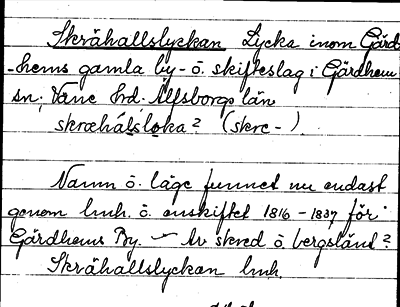 Skråhallslyckan Lycka inom Gärd
-hems gamla by- o. skifteslag i Gärdhem
sn; Väne hrd. Älfsborgs län
skræhálsloka? (skre-)
Namn o. läge funnet nu endast
genom lmh. o. enskiftet 1816-1837 för
Gärdhems By. - Av skred o. bergsländ?
Skråhallslyckan lmh.